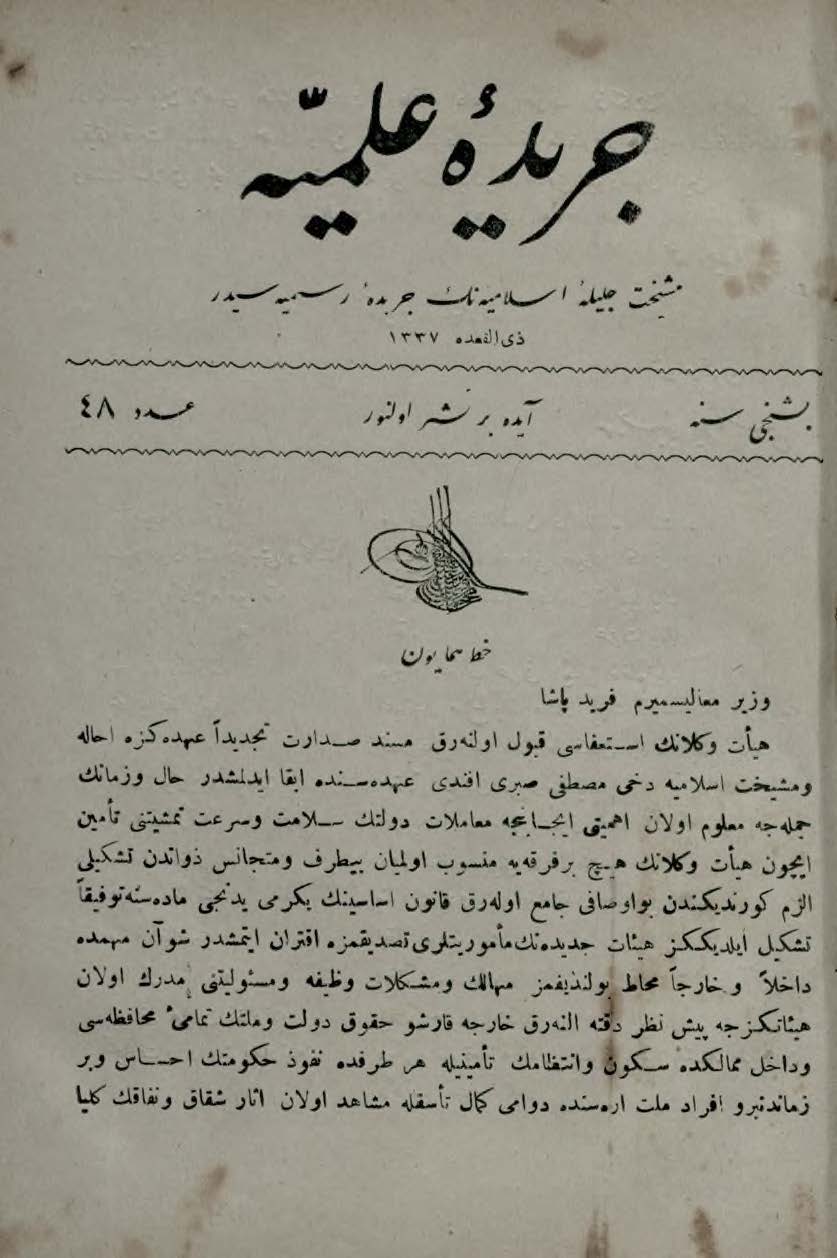 جريدۀ علميّه
مشيخت جليلۀ اسلاميه نك جريدۀ رسميه سيدر
ذى القعده ١٣٣٧
بشنجى سنه
آيده بر نشر اولنور
عدد ٤٨
خط همايون
وزير معاليسميرم فريد پاشا
هيأت وكلانك استعفاسى قبول اولنه‌رق مسند صدارت تجديداً عهده‌كزه احاله
ومشيخت اسلاميه دخى مصطفى صبرى افندى عهده‌سنده ابقا ايدلمشدر حال وزمانك
جمله‌جه معلوم اولان اهميتى ايجابجه معاملات دولتك سلامت وسرعت تمشيتنى تأمين
ايچون هيأت وكلانك هيچ برفرقه‌يه منسوب اولميان بيطرف ومتجانس ذواتدن تشكيلى
الزم كورنديكندن بواوصافى جامع اوله‌رق قانون اساسينك يكرمى يدنجى ماده‌سنه توفيقاً
تشكيل ايلديككز هيئات جديده‌نك مأموريتلرى تصديقمزه اقتران ايتمشدر شو آن مهمده
داخلاً و خارجاً محاط بولنديغمز مهالك ومشكلات وظيفه ومسئوليتنى مدرك اولان
هيئاتكزجه پيش نظر دقته النه‌رق خارجه قارشو حقوق دولت وملتك تمامئ محافظه‌سى
وداخل ممالكده سكون وانتظامك تأمينيله هر طرفده نفوذ حكومتك احساس وبر
زماندنبرو افراد ملت اره‌سنده دوامى كمال تأسفله مشاهد اولان اثار شقاق ونفاقك كليا